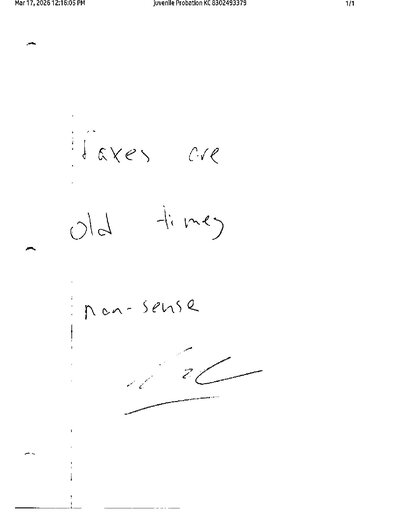 Mar 17, 2026 12:16:05 PM Juvenile Probation KC 8302493379 1/1
Faxes are
old timey
non-sense